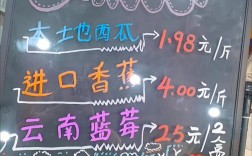 本土地西瓜 1.98元/斤
进口香蕉 4.00元/斤
云南蓝莓 25元/2盒